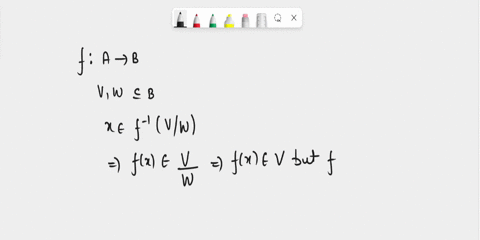 f: A → B
V, W ⊆ B
x ∈ f⁻¹(V/W)
⇒ f(x) ∈ V/W ⇒ f(x) ∈ V but f